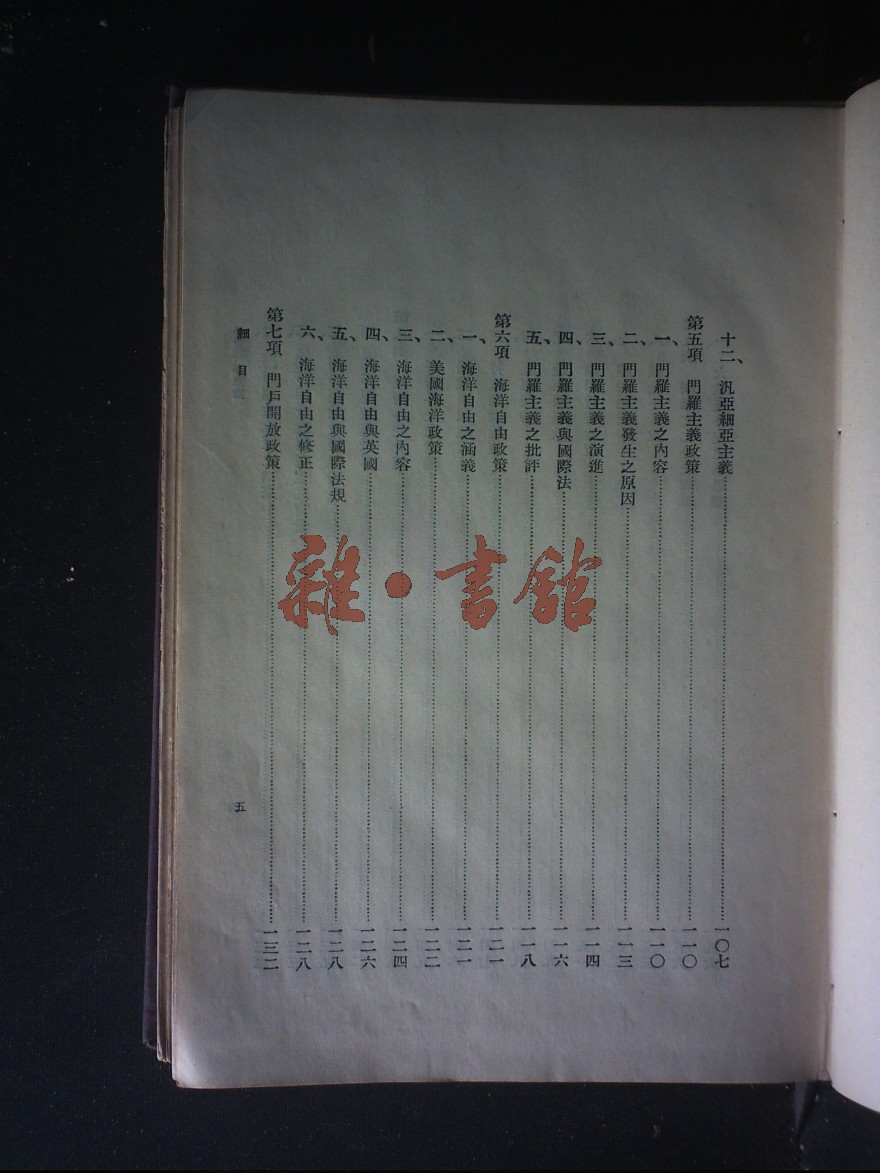 十二、汎亞細亞主義……一〇七
第五項　門羅主義政策……一一〇
一、門羅主義之內容……一一〇
二、門羅主義發生之原因……一一三
三、門羅主義之演進……一一四
四、門羅主義與國際法……一一六
五、門羅主義之批評……一一八
第六項　海洋自由政策……一二一
一、海洋自由之涵義……一二一
二、美國海洋政策……一二二
三、海洋自由之內容……一二四
四、海洋自由與英國……一二六
五、海洋自由與國際法規……一二八
六、海洋自由之修正……一二八
第七項　門戶開放政策……一三二
細目　五
雜·書館